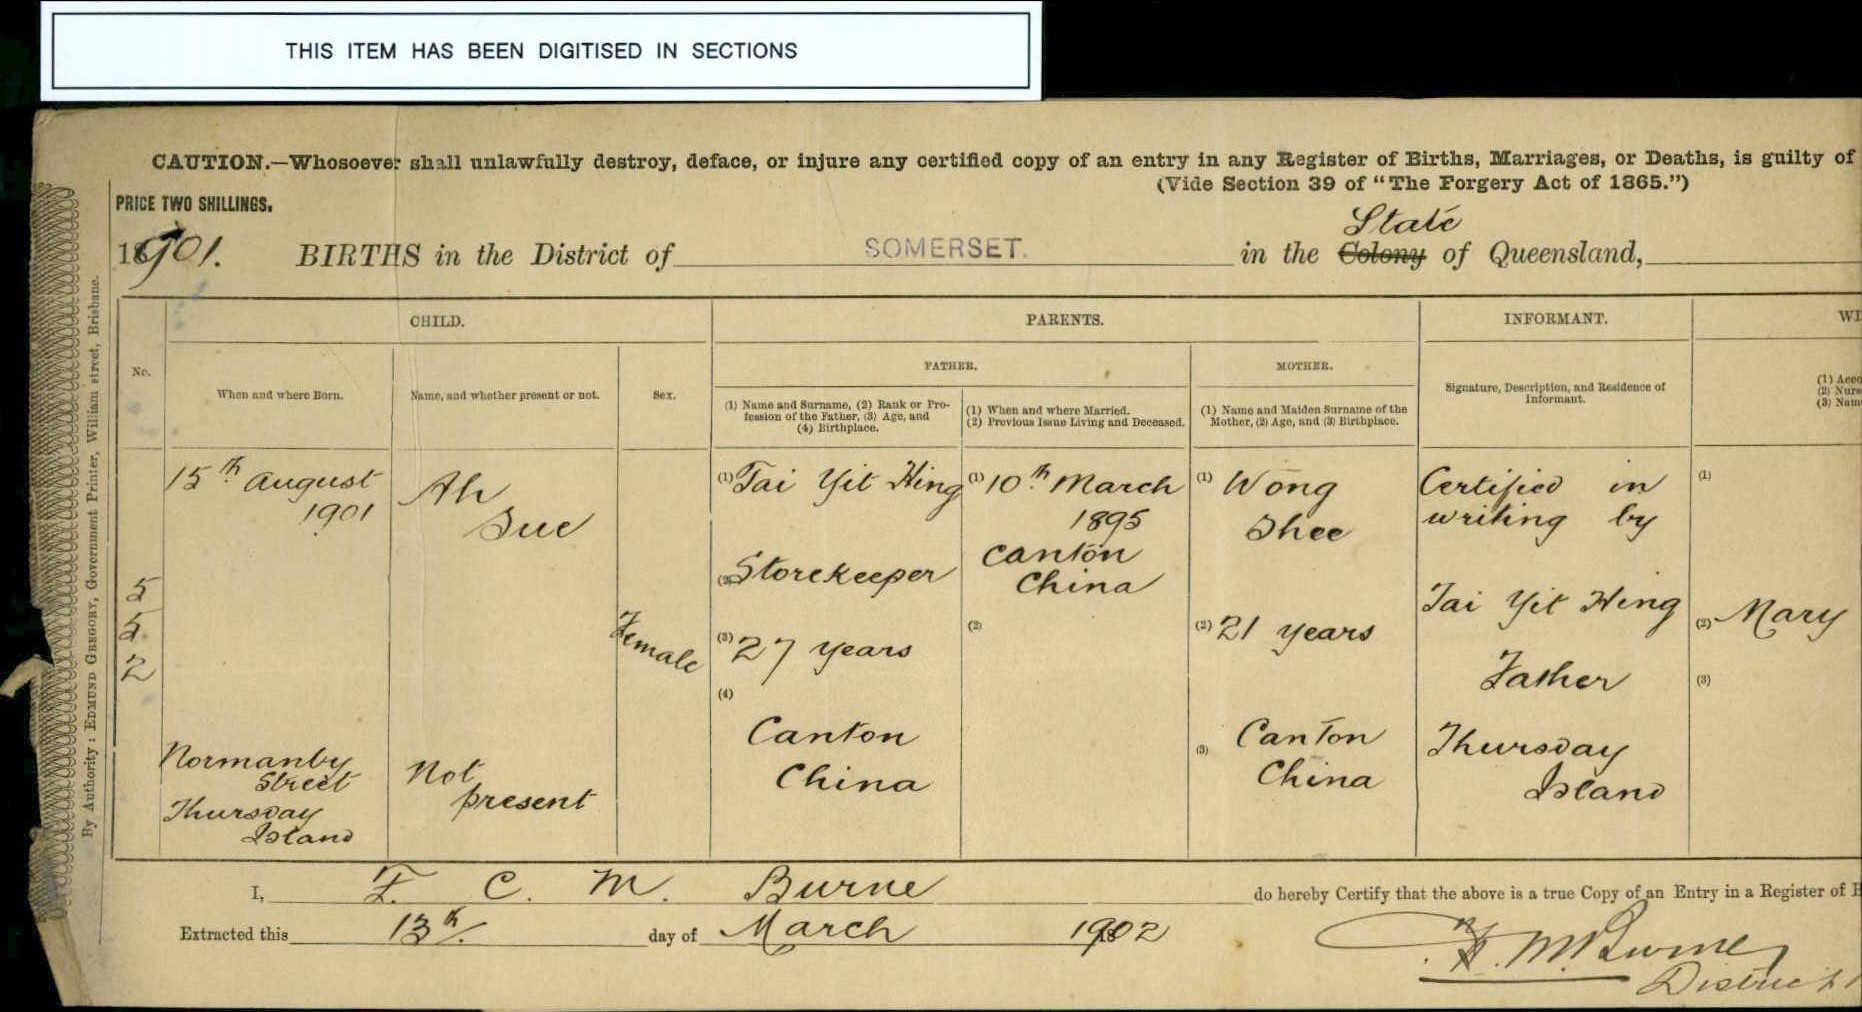 THIS ITEM HAS BEEN DIGITISED IN SECTIONS
CAUTION.—Whosoever shall unlawfully destroy, deface, or injure any certified copy of an entry in any Register of Births, Marriages, or Deaths, is guilty of
(Vide Section 39 of "The Forgery Act of 1865.")
PRICE TWO SHILLINGS.
State
1901. BIRTHS in the District of SOMERSET. in the Colony of Queensland,
By Authority: EDMUND GREGORY, Government Printer, William street, Brisbane.
No.
CHILD.
When and where Born.
Name, and whether present or not.
Sex.
PARENTS.
FATHER.
(1) Name and Surname, (2) Rank or Pro-
fession of the Father, (3) Age, and
(4) Birthplace.
(1) When and where Married.
(2) Previous Issue Living and Deceased.
MOTHER.
(1) Name and Maiden Surname of the
Mother, (2) Age, and (3) Birthplace.
INFORMANT.
Signature, Description, and Residence of
Informant.
WI
(1) Acco
(2) Nurs
(3) Nam
5
5
2
15th August
1901
Normanby
Street
Thursday
Island
Ah
Sue
Not
present
Female
(1) Tai Yit Hing
(2) Storekeeper
(3) 27 years
(4)
Canton
China
(1) 10th March
1895
Canton
China
(2)
(1) Wong
Shee
(2) 21 years
(3) Canton
China
Certified in
writing by
Tai Yit Hing
Father
Thursday
Island
(1)
(2) Mary
(3)
I, F. C. M. Burne do hereby Certify that the above is a true Copy of an Entry in a Register of B
Extracted this 13th day of March 1902
M. Burne
District